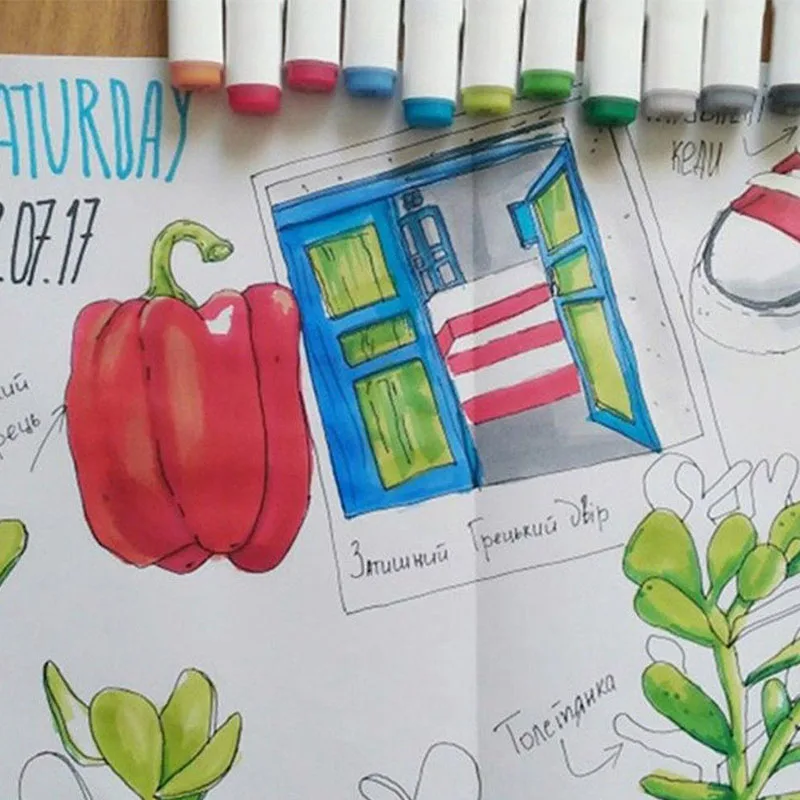 ATURDAY
.07.17
кеди
кий
рець
Затишний Грецький двір
Толстянка